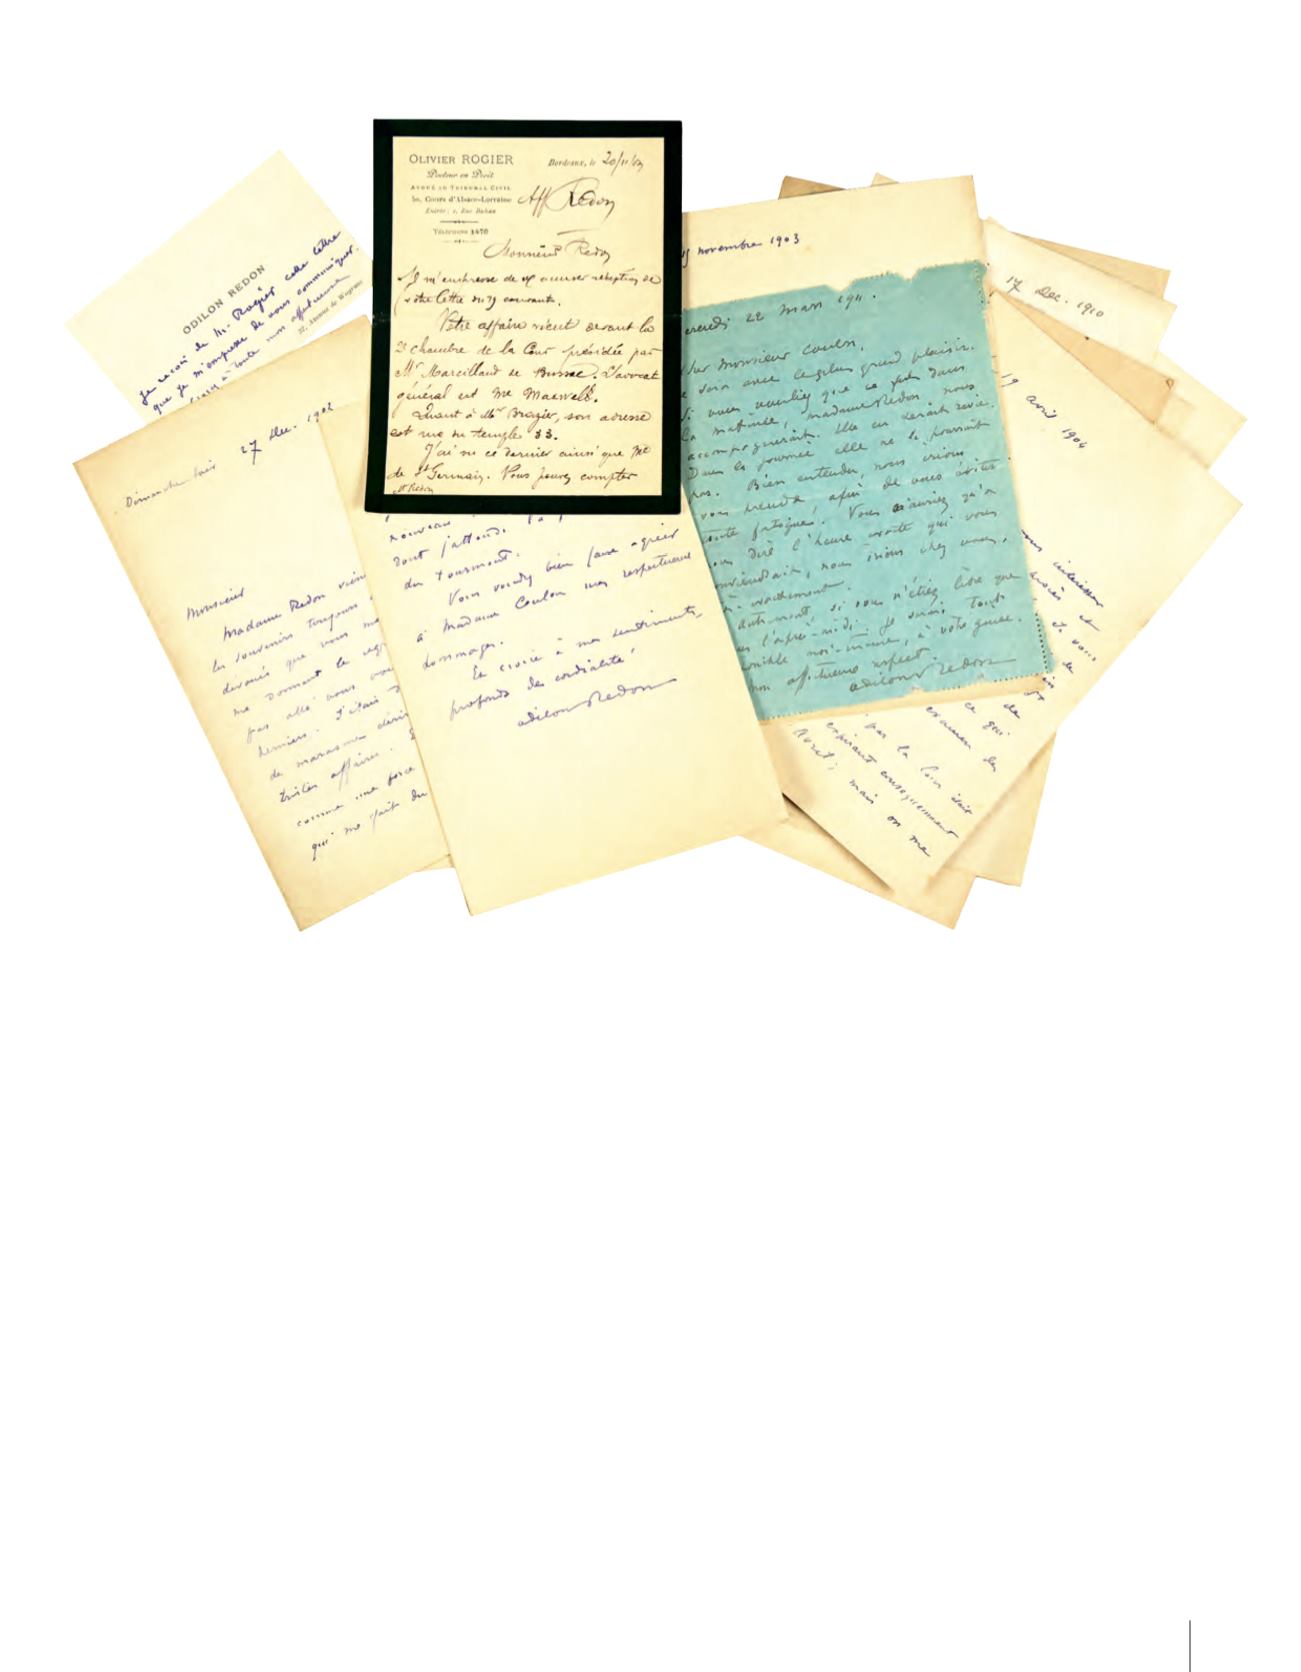 ODILON REDON
Je reçois de M. Rogier cette lettre
que je m'empresse de vous communiquer.
à toute mon affectueuse
22, Avenue de Wagram
OLIVIER ROGIER
Docteur en Droit
AVOUÉ AU TRIBUNAL CIVIL
50, Cours d'Alsace-Lorraine
Entrée : 1, Rue Buhan
TÉLÉPHONE 1470
Bordeaux, le 20/11/03
Aff Redon
Monsieur Redon
Je m'empresse de vous accuser réception de
votre lettre du 19 courant.
Votre affaire vient devant la
2e chambre de la Cour présidée par
Mr Marcillaud de Bussac. L'avocat
général est Me Maxwell.
Quant à Me Brazier, son adresse
est rue du temple 33.
J'ai vu ce dernier ainsi que Me
de St Germain. Vous pouvez compter
Mr Redon
Dimanche soir 27 Dec. 1902
Monsieur
Madame Redon vien
les souvenirs toujours
dévoués que vous me
me donnant le reg
pas allé vous voi
derniers. J'étais d
de marasme
tristes affaires.
comme une force
qui me fait du
nouveau
dont j'attends
du tourment.
Vous voudrez bien faire agréer
à Madame Coulon mes respectueux
hommages.
Et croire à mes sentiments
profonds de cordialité
odilon Redon
15 novembre 1903
ercredi 22 mars 1911.
her Monsieur Coulon,
e serai avec le plus grand plaisir.
Si vous vouliez que ce fut dans
la matinée, madame Redon nous
accompagnerait. Elle en serait ravie.
Dans la journée elle ne le pourrait
pas. Bien entendu, nous irions
vous prendre, afin de vous éviter
toute fatigue. Vous n'auriez qu'à
ous dire l'heure exacte qui vous
onviendrait, nous irions chez vous,
exactement.
autrement si vous n'étiez libre que
es l'après-midi, je serais tout
onible moi-même, à votre guise.
mon affectueux respect
odilon Redon
17 Dec. 1910
19 avril 1904
ous intéresser
procès et
Je vous
de
ce qui
examen des
par la Cour était
expirant
avril; mais on me